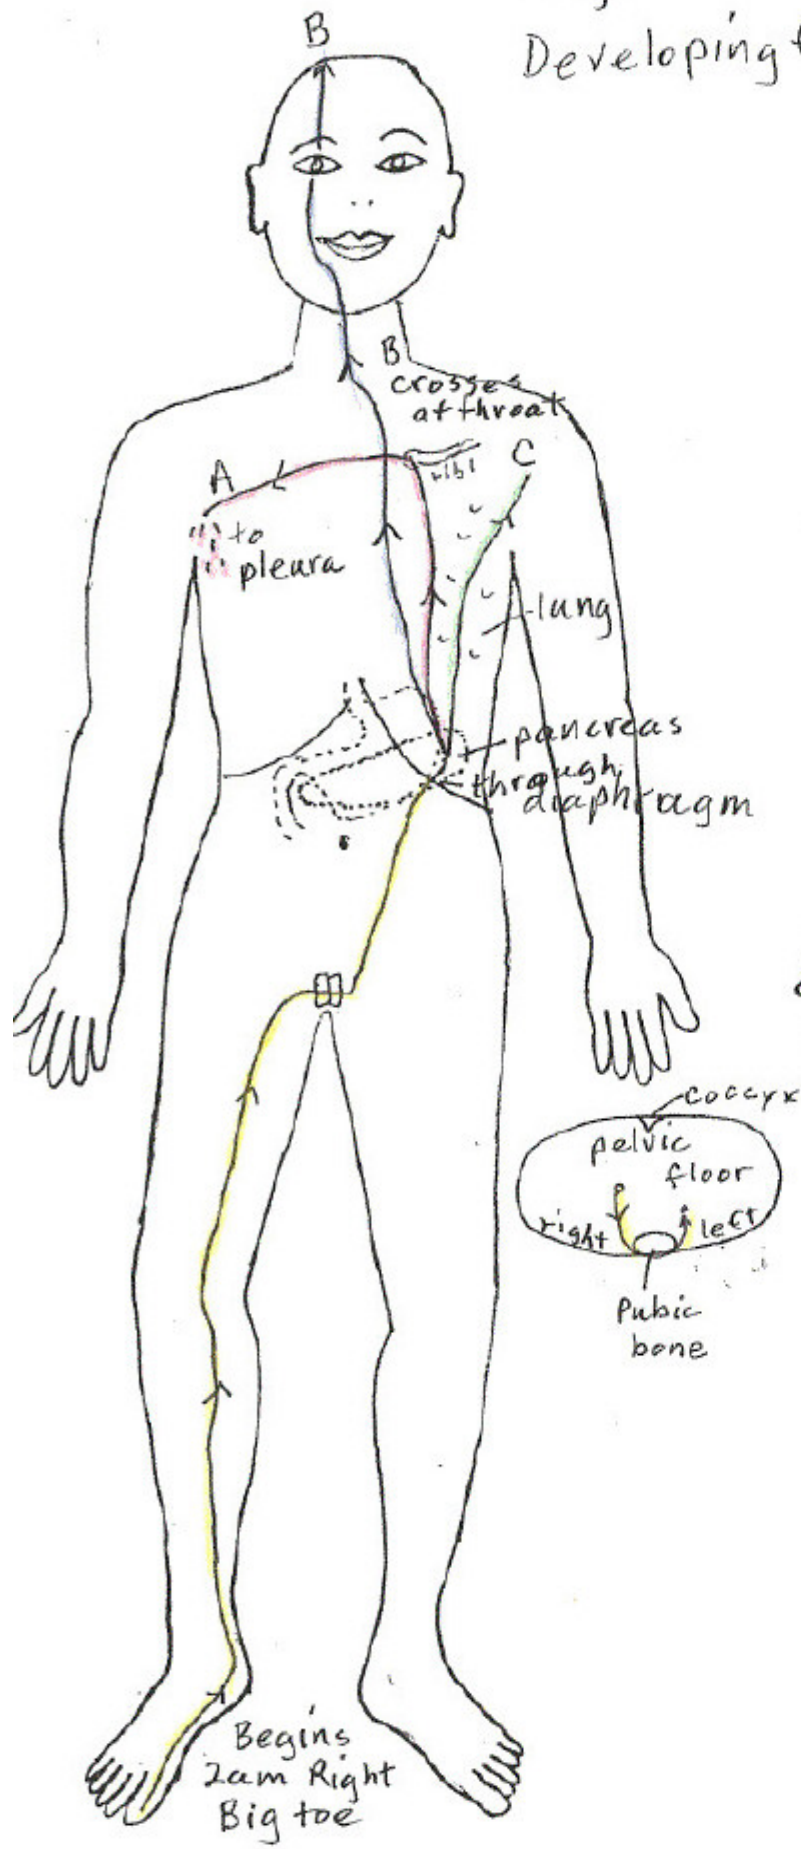 Developing
B
B
crosses
at throat
A
rib1
C
to
pleura
lung
pancreas
through
diaphragm
coccyx
pelvic
floor
right
left
Pubic
bone
Begins
2am Right
Big toe